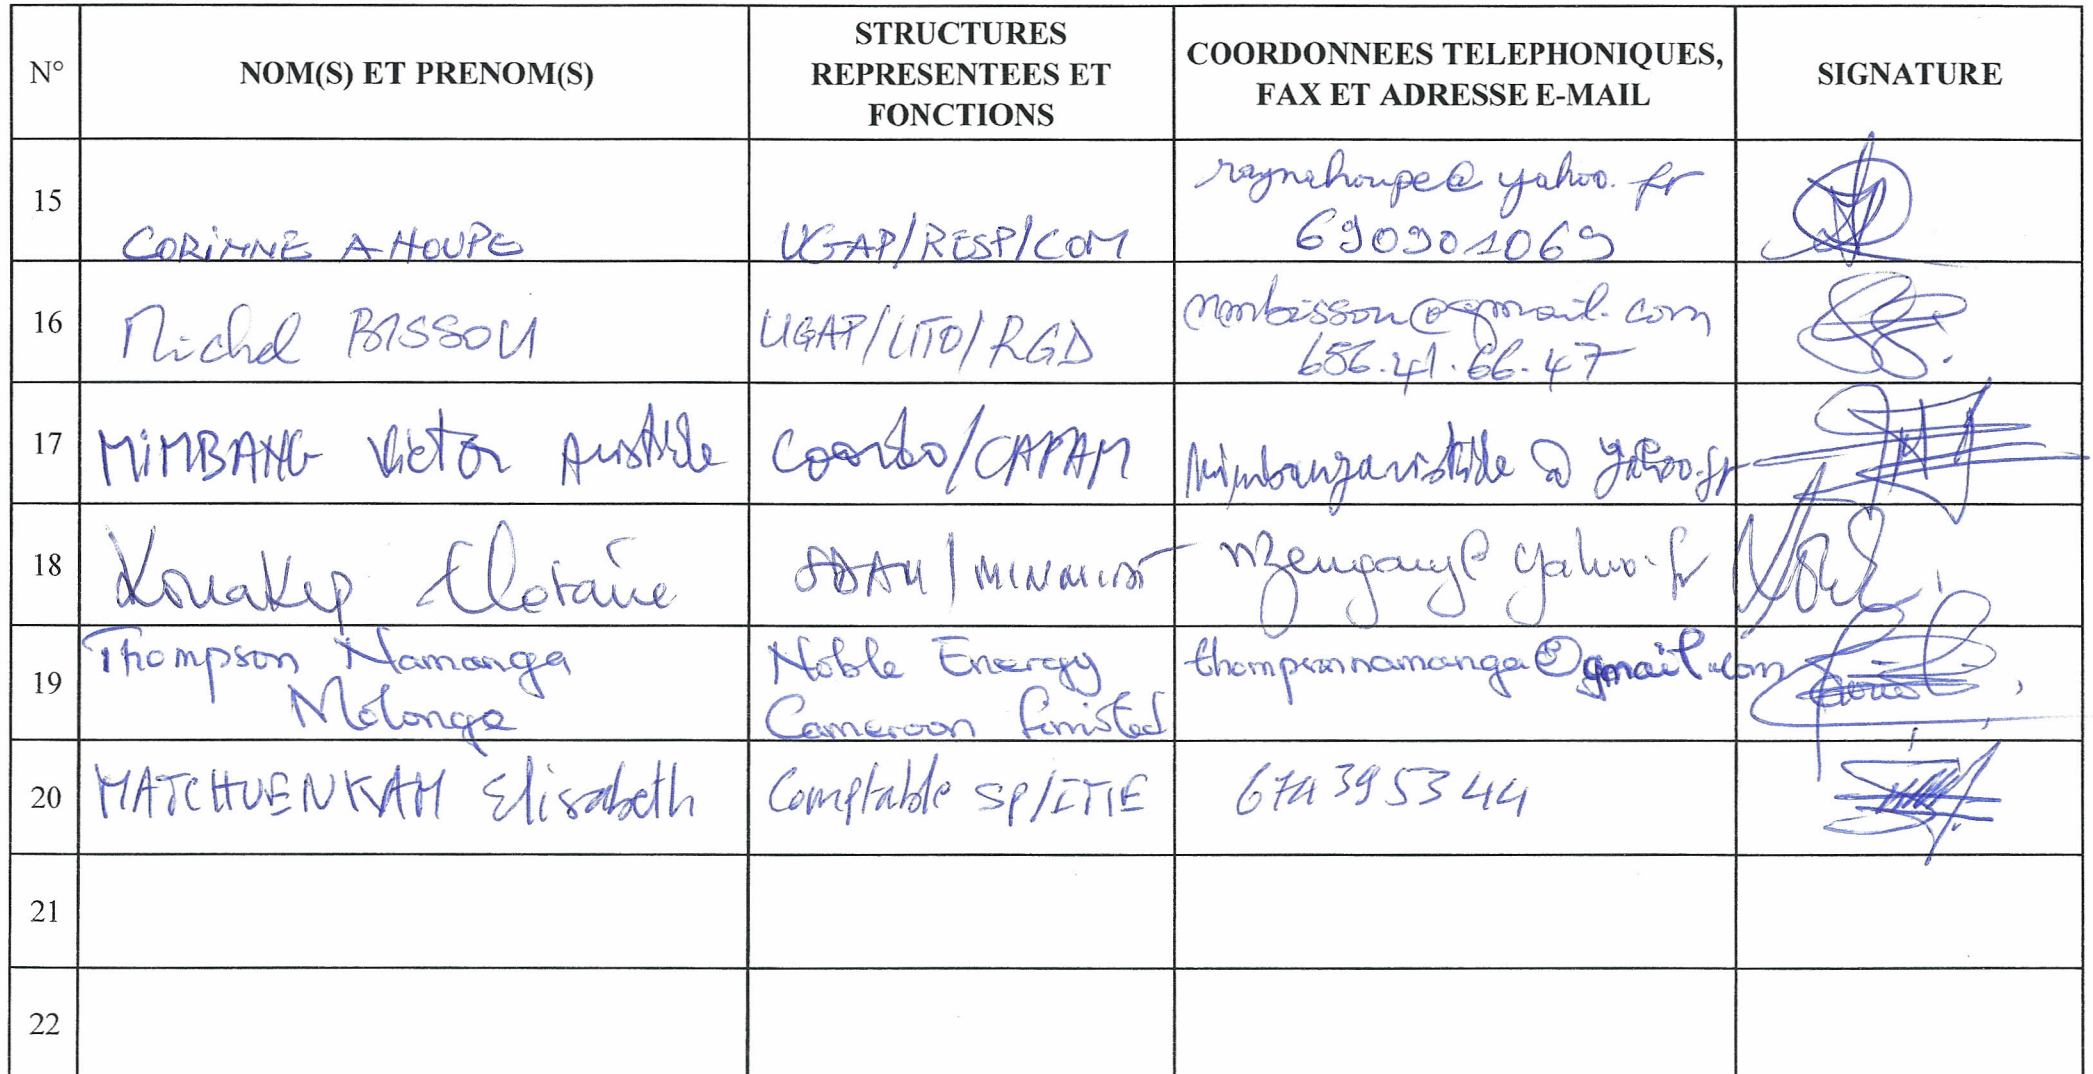 N°
NOM(S) ET PRENOM(S)
STRUCTURES
REPRESENTEES ET
FONCTIONS
COORDONNEES TELEPHONIQUES,
FAX ET ADRESSE E-MAIL
SIGNATURE
15
CORINNE AHOUPE
UGAP/RESP/COM
raynahoupe@yahoo.fr
690901069
16
Michel BISSOU
UGAP/LITO/RGD
mmbissou@gmail.com
656.41.66.47
17
MIMBANG Victor Aristide
Coordo/CAPAM
mimbangaristide@yahoo.fr
18
Kouakep
yahoo.fr
19
Thompson Namanga
Molongo
Noble Energy
Cameroon Limited
thompsonnamanga@gmail.com
20
MATCHUENKAM Elisabeth
Comptable SP/ITIE
674395344
21
22